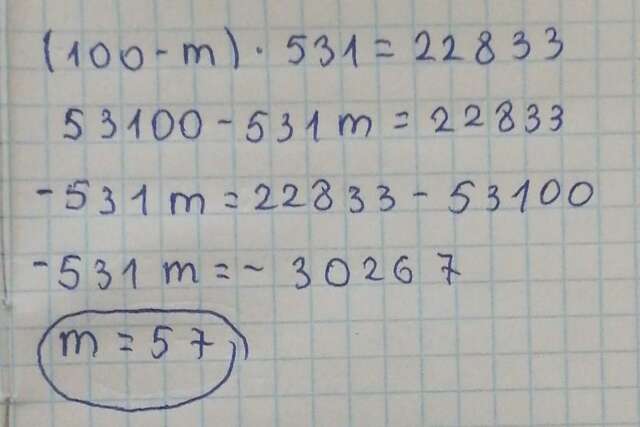 (100 - m) · 531 = 22833
53100 - 531 m = 22833
-531 m = 22833 - 53100
-531 m = - 30267
m = 57